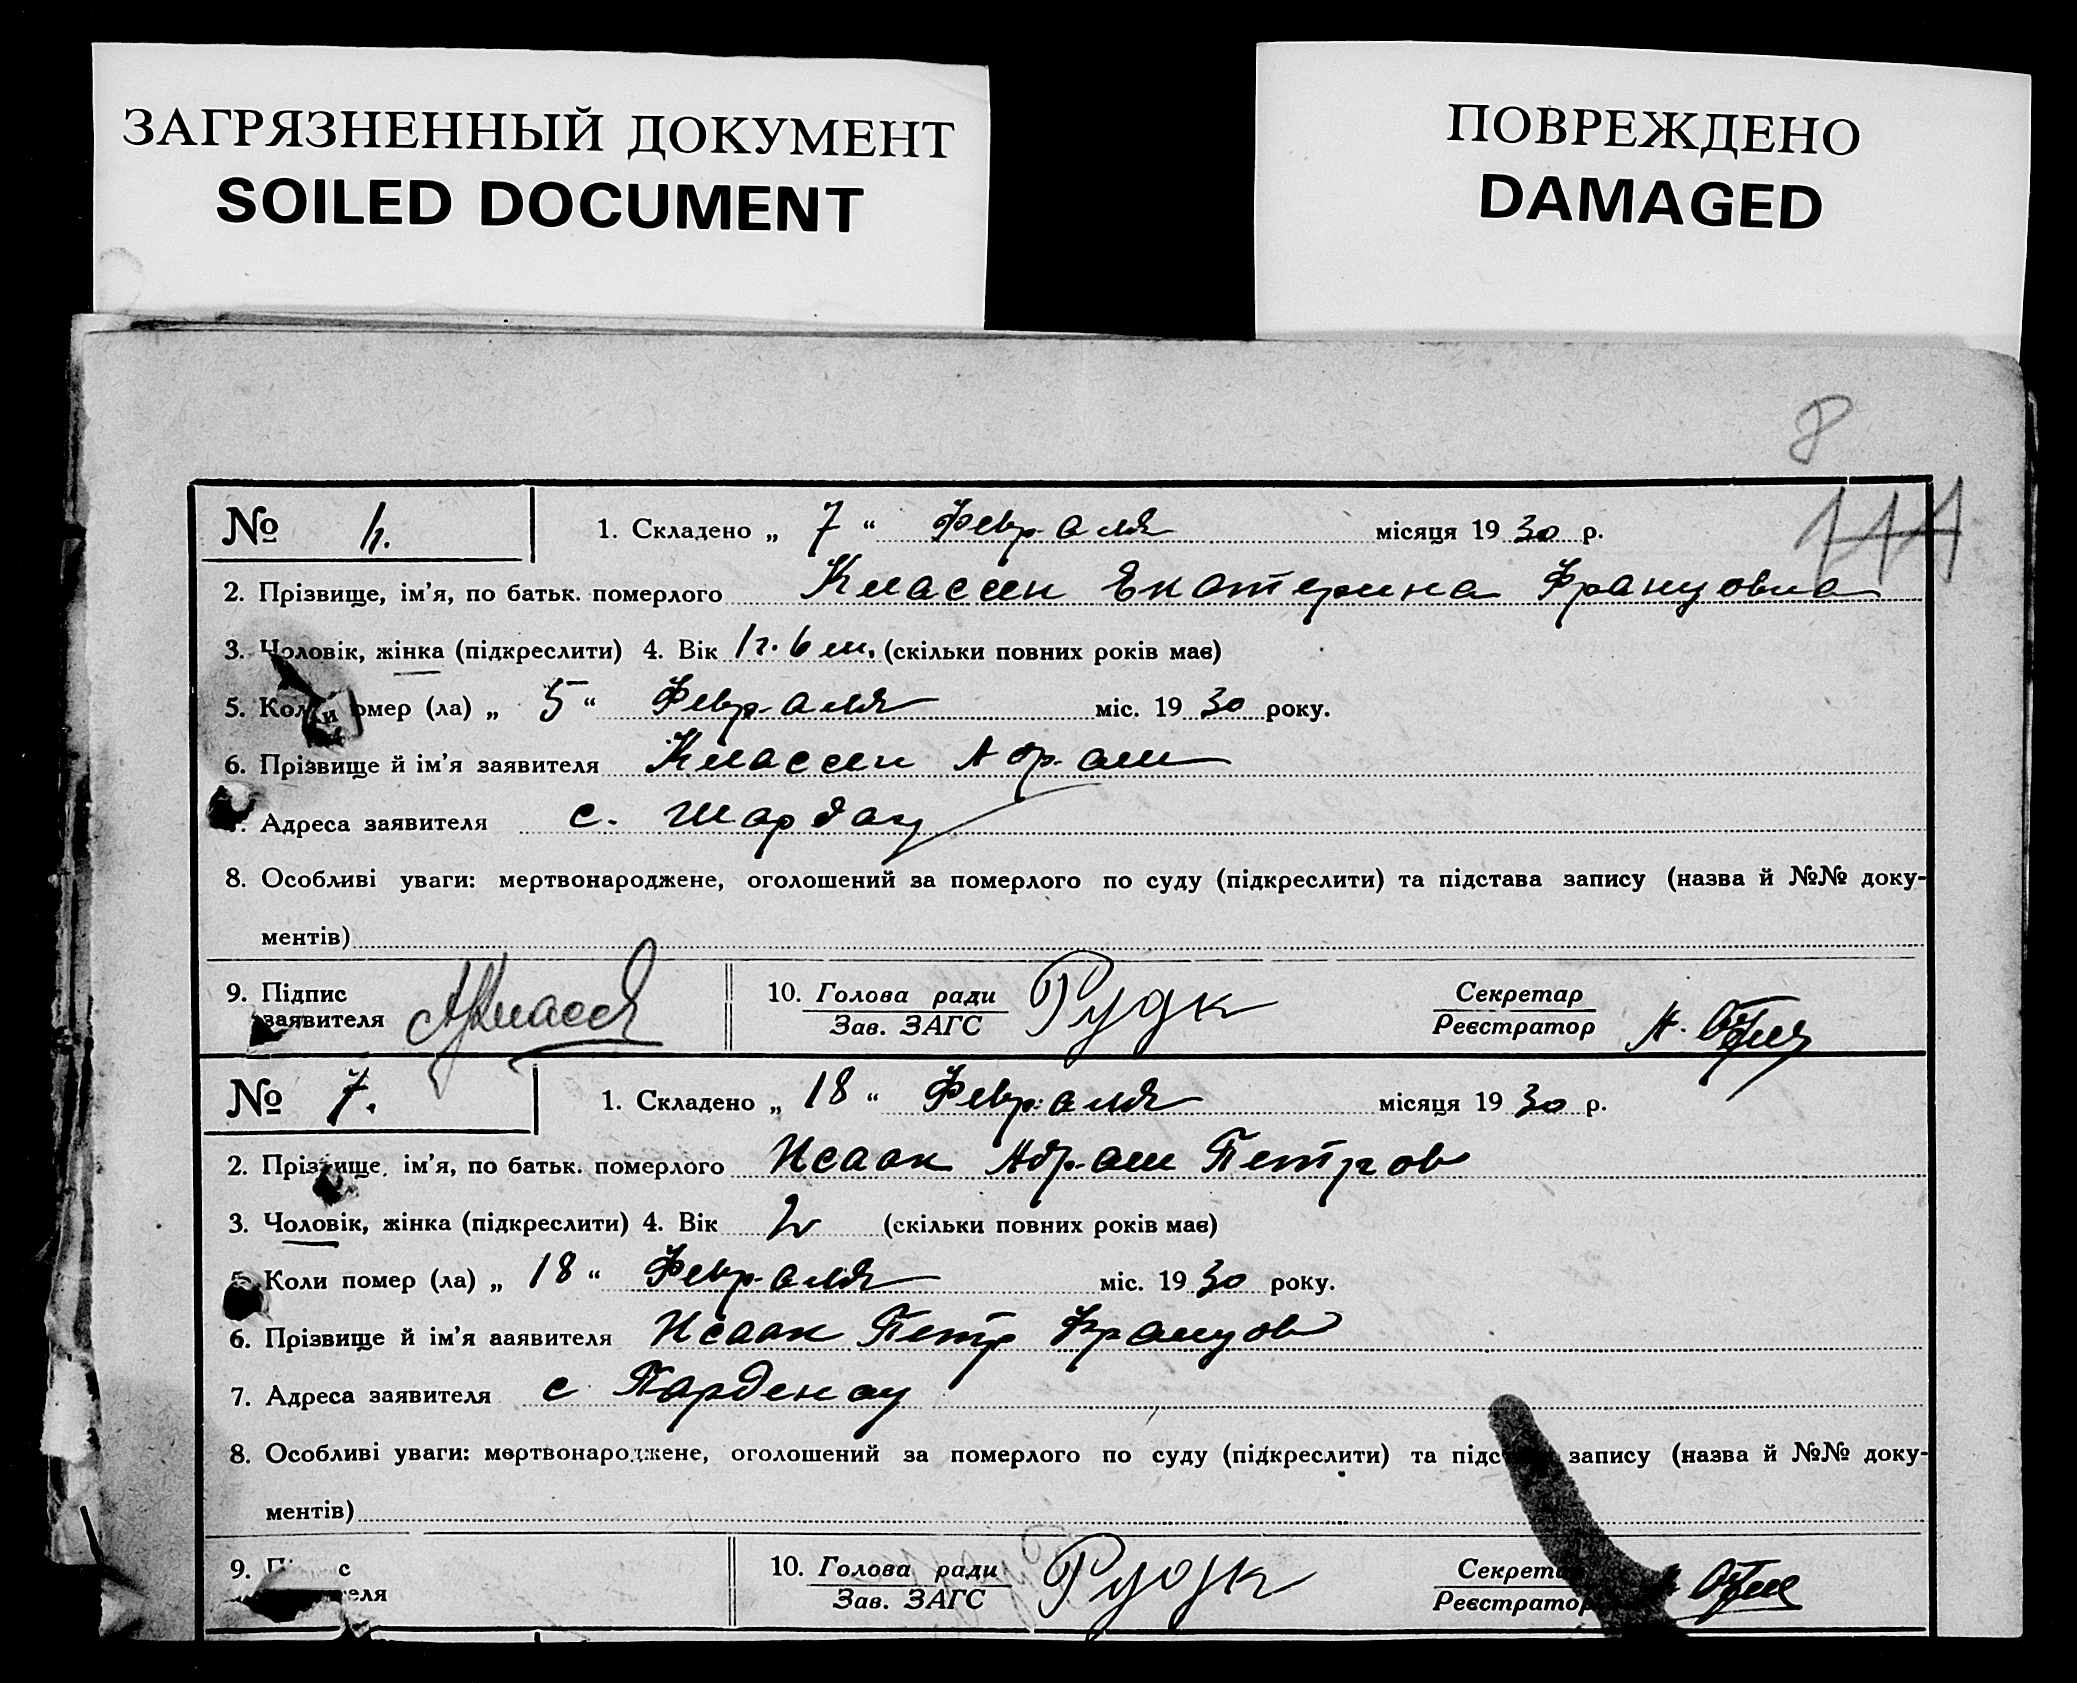 ЗАГРЯЗНЕННЫЙ ДОКУМЕНТ
SOILED DOCUMENT
ПОВРЕЖДЕНО
DAMAGED
8
111
№ 6. 1. Складено „ 7 “ Февраля місяця 1930 р.
2. Прізвище, ім’я, по батьк. померлого Классен Екатерина Францовна
3. Чоловік, жінка (підкреслити) 4. Вік 1 г. 6 м. (скільки повних років має)
5. Коли помер (ла) „ 5 “ Февраля міс. 1930 року.
6. Прізвище й ім’я заявителя Классен Абрам
7. Адреса заявителя с. Шардау
8. Особливі уваги: мертвонароджене, оголошений за померлого по суду (підкреслити) та підстава запису (назва й №№ доку-
ментів)
9. Підпис заявителя АКласс 10. Голова ради Зав. ЗАГС Рудк Секретар Реєстратор А.
№ 7. 1. Складено „ 18 “ Февраля місяця 1930 р.
2. Прізвище, ім’я, по батьк. померлого Исаак Абрам Петров
3. Чоловік, жінка (підкреслити) 4. Вік 2 (скільки повних років має)
5. Коли помер (ла) „ 18 “ Февраля міс. 1930 року.
6. Прізвище й ім’я ааявителя Исаак Петр Францов
7. Адреса заявителя с Парденау
8. Особливі уваги: мертвонароджене, оголошений за померлого по суду (підкреслити) та підс запису (назва й №№ доку-
ментів)
9. 10. Голова ради Зав. ЗАГС Рудк Секрет Реєстратор